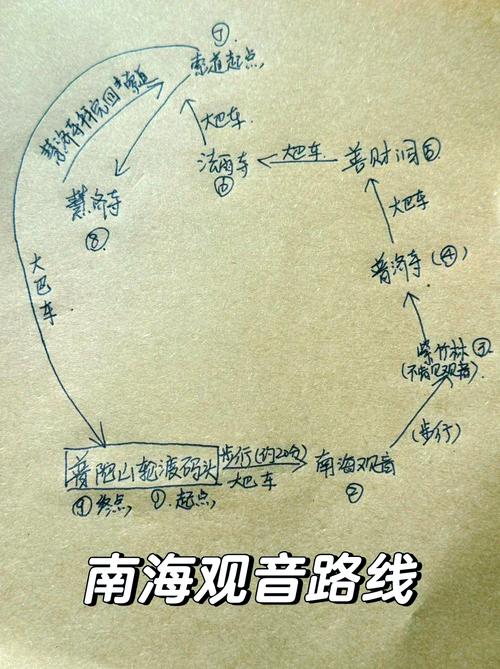 ⑦
索道起点
慧济寺拜完回索道
大巴车
法雨寺
⑥
大巴车
善财洞⑤
慧济寺
⑧
大巴车
大巴车
普济寺(④)
紫竹林③
(不肯见观音)
(步行)
普陀山轮渡码头
步行(约20分)
大巴车
南海观音
②
⑨终点
①.起点
南海观音路线